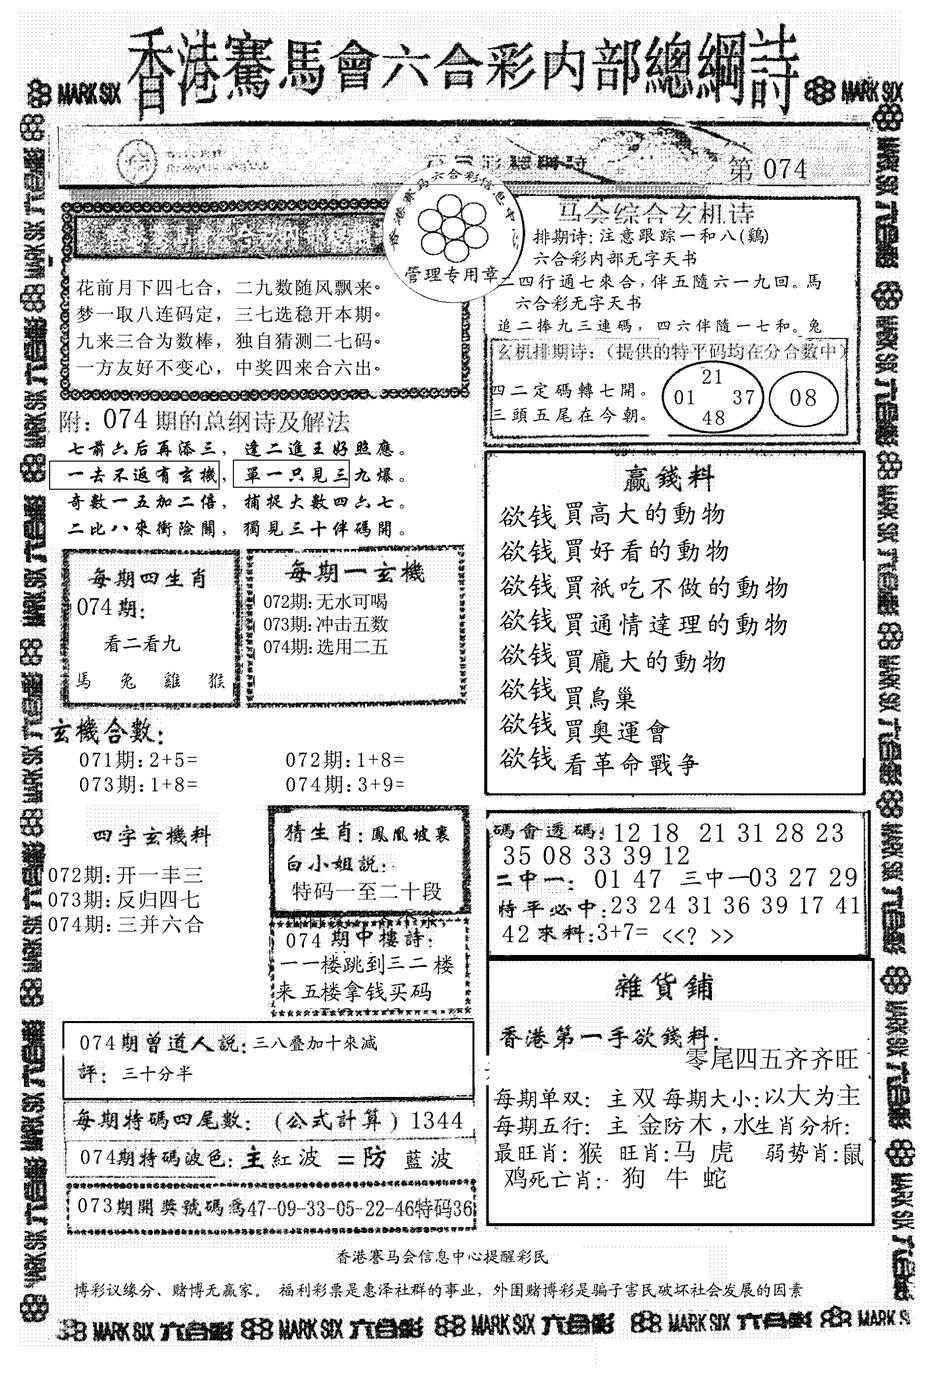 香港賽馬會六合彩内部總綱詩
MARK SIX
MARK SIX
第 074
香港賽马六合彩信息中心
管理专用章
花前月下四七合，二九数随风飘来。
梦一取八连码定，三七选稳开本期。
九来三合为数棒，独自猜测二七码。
一方友好不变心，中奖四来合六出。
马会综合玄机诗
排期诗:注意跟踪一和八(鷄)
六合彩内部无字天书
二四行通七來合,伴五隨六一九回。馬
六合彩无字天书
追二捧九三連碼，四六伴隨一七和。兔
玄机排期诗:（提供的特平码均在分合数中）
四二定碼轉七開。
三頭五尾在今朝。
21
01 37
48
08
附: 074 期的总纲诗及解法
七前六后再添三，逢二進王好照應。
一去不返有玄機，單一只見三九爆。
奇數一五加二倍，捕捉大數四六七。
二比八來衝險關，獨見三十伴碼開。
每期四生肖
074期:
看二看九
馬 兔 雞 猴
每期一玄機
072期:无水可喝
073期:冲击五数
074期:选用二五
玄機合數:
071期:2+5= 072期:1+8=
073期:1+8= 074期:3+9=
四字玄機料
072期:开一丰三
073期:反归四七
074期:三并六合
猜生肖:鳳凰坡裏
白小姐説:
特码一至二十段
074期中樓詩:
一一楼跳到三二楼
来五楼拿钱买码
赢錢料
欲钱買高大的動物
欲钱買好看的動物
欲钱買祇吃不做的動物
欲钱買通情達理的動物
欲钱買龐大的動物
欲钱買鳥巢
欲钱買奥運會
欲钱看革命戰争
碼會透碼:12 18 21 31 28 23
35 08 33 39 12
二中一: 01 47 三中一03 27 29
特平必中:23 24 31 36 39 17 41
42來料:3+7= <<? >>
雜貨鋪
香港第一手欲錢料:
零尾四五齐齐旺
每期单双: 主双 每期大小:以大为主
每期五行: 主 金防木,水生肖分析:
最旺肖: 猴 旺肖:马 虎 弱势肖:鼠
鸡死亡肖: 狗 牛 蛇
074期曾道人説:三八叠加十來减
評: 三十分半
每期特碼四尾數: (公式計算) 1344
074期特碼波色:主紅波 =防 藍波
073期開獎號碼爲47-09-33-05-22-46特码36
香港賽马会信息中心提醒彩民
博彩议缘分、赌博无赢家。 福利彩票是惠泽社群的事业，外围赌博彩是骗子害民破坏社会发展的因素
MARK SIX 六合彩 MARK SIX 六合彩 MARK SIX 六合彩 MARK SIX 六合彩 MARK SIX